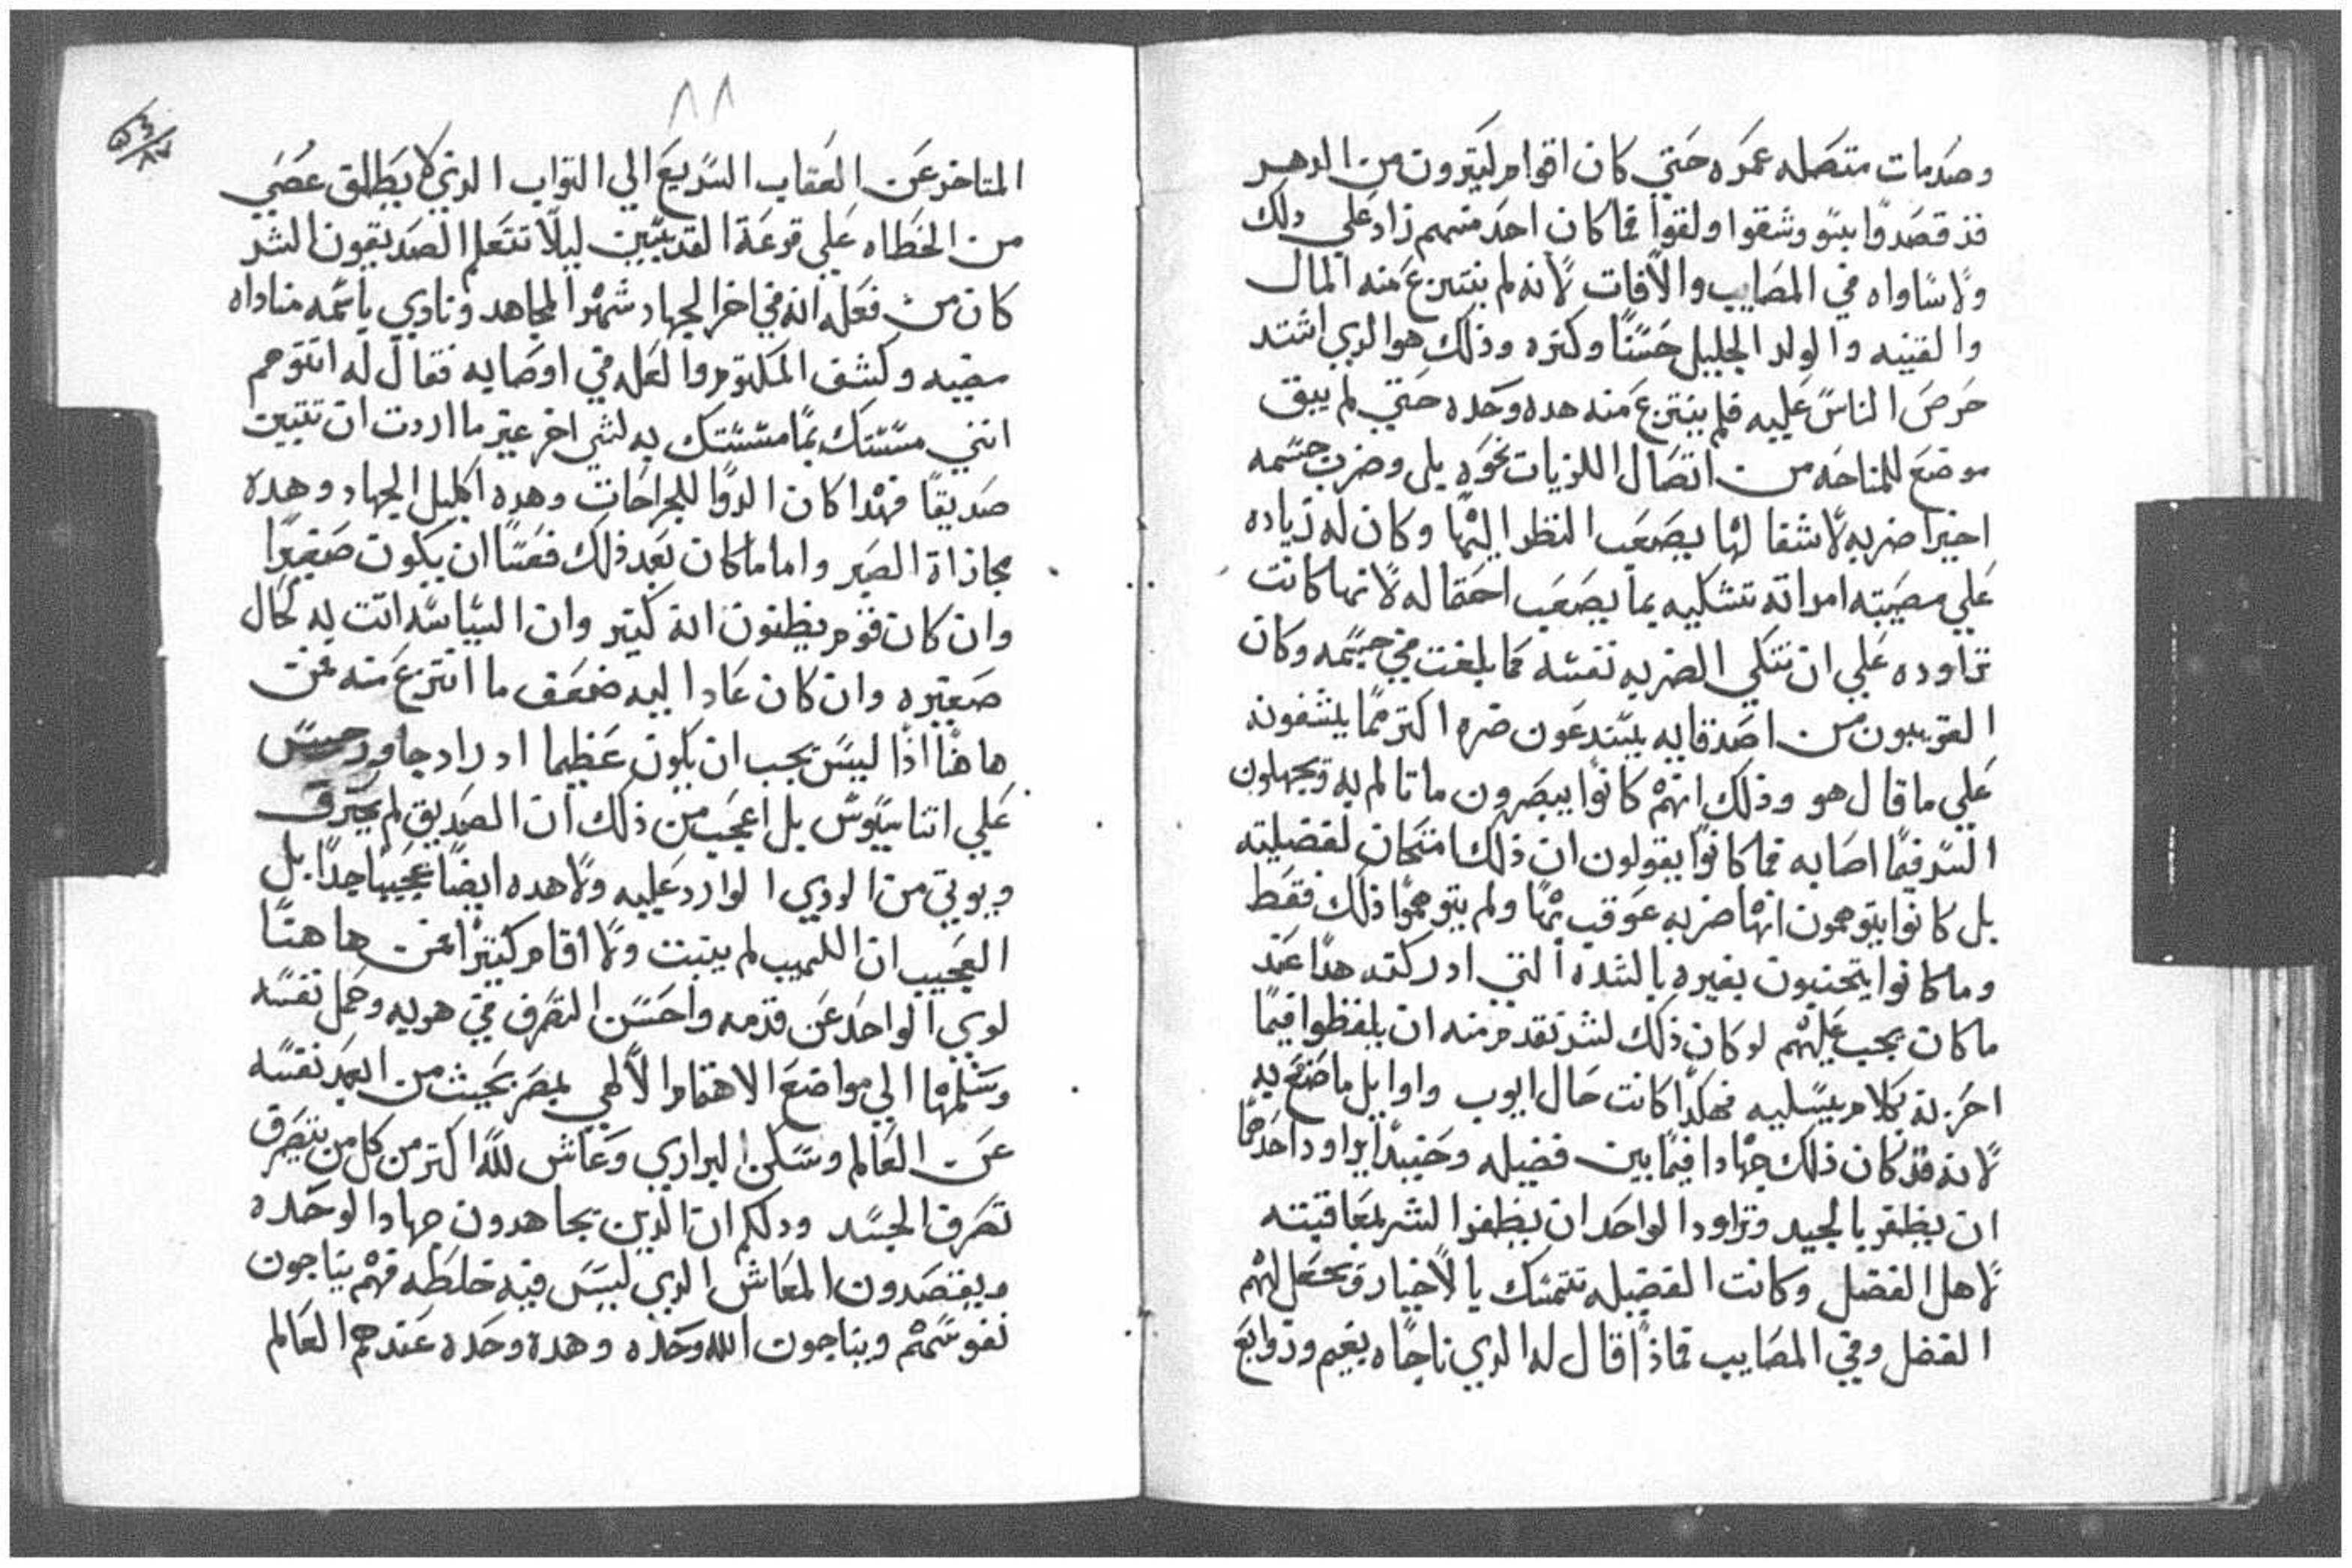 وصدمات متصله عمره حتي كان اقوام كتيرون من الدهر
قد قصدوا بيبو وشقوا ولقوا فما كان احد منهم زاد علي دلك
ولا ساواه في المصايب والافات لانه لم ينتزع منه المال
والقنيه والولد الجليل حسنا وكتره وذلك هو الدي اشتد
حرص الناس عليه فلم ينتزع منه هده وحده حتي لم يبق
موضع للمناحه من اتصال اللزيات نحوه بلى وضرب جسمه
اخيرا ضربه لا شفا لها يصعب النظر اليها وكان له زياده
علي مصيبته امراته تشكيه بما يصعب احتماله لانها كانت
تراوده علي ان تنكي الضربه نفسه كما بلغت في جسمه وكان
القريبون من اصدقايه يستدعون ضره اكتر مما يشفونه
علي ما قال هو وذلك انهم كانوا يبصرون ما تالم به ويجهلون
السر فيما اصابه فما كانوا يقولون ان ذلك امتحان لفضيلته
بل كانوا يتوهمون انها ضربه عوقب بها ولم يتوهموا ذلك فقط
وما كانوا يتجنبون بغيره بالشده التي ادركته هدا عند
ما كان يجب عليهم لو كان ذلك لشر تقدم منه ان يلفظوا فيما
احزنه بكلام يسليه فهكدا كانت حال ايوب واوايل ما صنع به
لانه قد كان ذلك جهادا فيما بين فضيله وحسد يراود احدهما
ان يظفر بالجيد وتراود الواحد ان يظفر الشر بمعاقبته
لاهل الفضل وكانت الفضيله تتمسك بالاخيار وتجعل لهم
الفضل وفي المصايب فماذا قال له الدي ناجاه بغيم وزوابع
٨٨
المتاخر عن العقاب السريع الي التواب الدي لا يطلق عصي
من الخطاه علي قرعة القديسين ليلا تتعلم الصديقون الشر
كان من فعله انه في اخر الجهاد شهر المجاهد ونادي باسمه مناداه
مضيه وكشف المكتوم والعله في اوصابه فقال له اتتوهم
انني مسستك بما مسستك به لشي اخر غير ما اردت ان تتبين
صديقا فهدا كان الدوا للجراحات وهده اكليل الجهاد وهده
مجازاة الصبر واما ما كان بعد ذلك فعسا ان يكون صغيرا
وان كان قوم يظنون انه كتير وان السياسه اتت به لحال
صغيره وان كان عاد اليه ضعف ما انتزع منه فمن
هاهنا اذا ليس يجب ان يكون عظيما اد راد جاورجيس
علي اتناسيوس بل اعجب من ذلك ان الصديق لم يحترق
ويوتي من الردي الوارد عليه ولا هده ايضا عجيبا جدا بل
العجيب ان اللهيب لم يتبت ولا اقام كتيرا فمن هاهنا
لوي الواحد عن قدمه واحسن التصرف في هربه وحمل نفسه
وسلمها الي مواضع الاهتمام الالهي بمصر بحيث من ابعد نفسه
عن العالم وسكن البراري وعاش لله اكتر من كل من يتصرف
تصرف الجسد ودلكم ان الدين يجاهدون جهاد الوحده
ويقتصدون المعاش الدي ليس فيه خلطه فهم يناجون
نفوسهم ويناجون الله وحده وهده وحده عندهم العالم